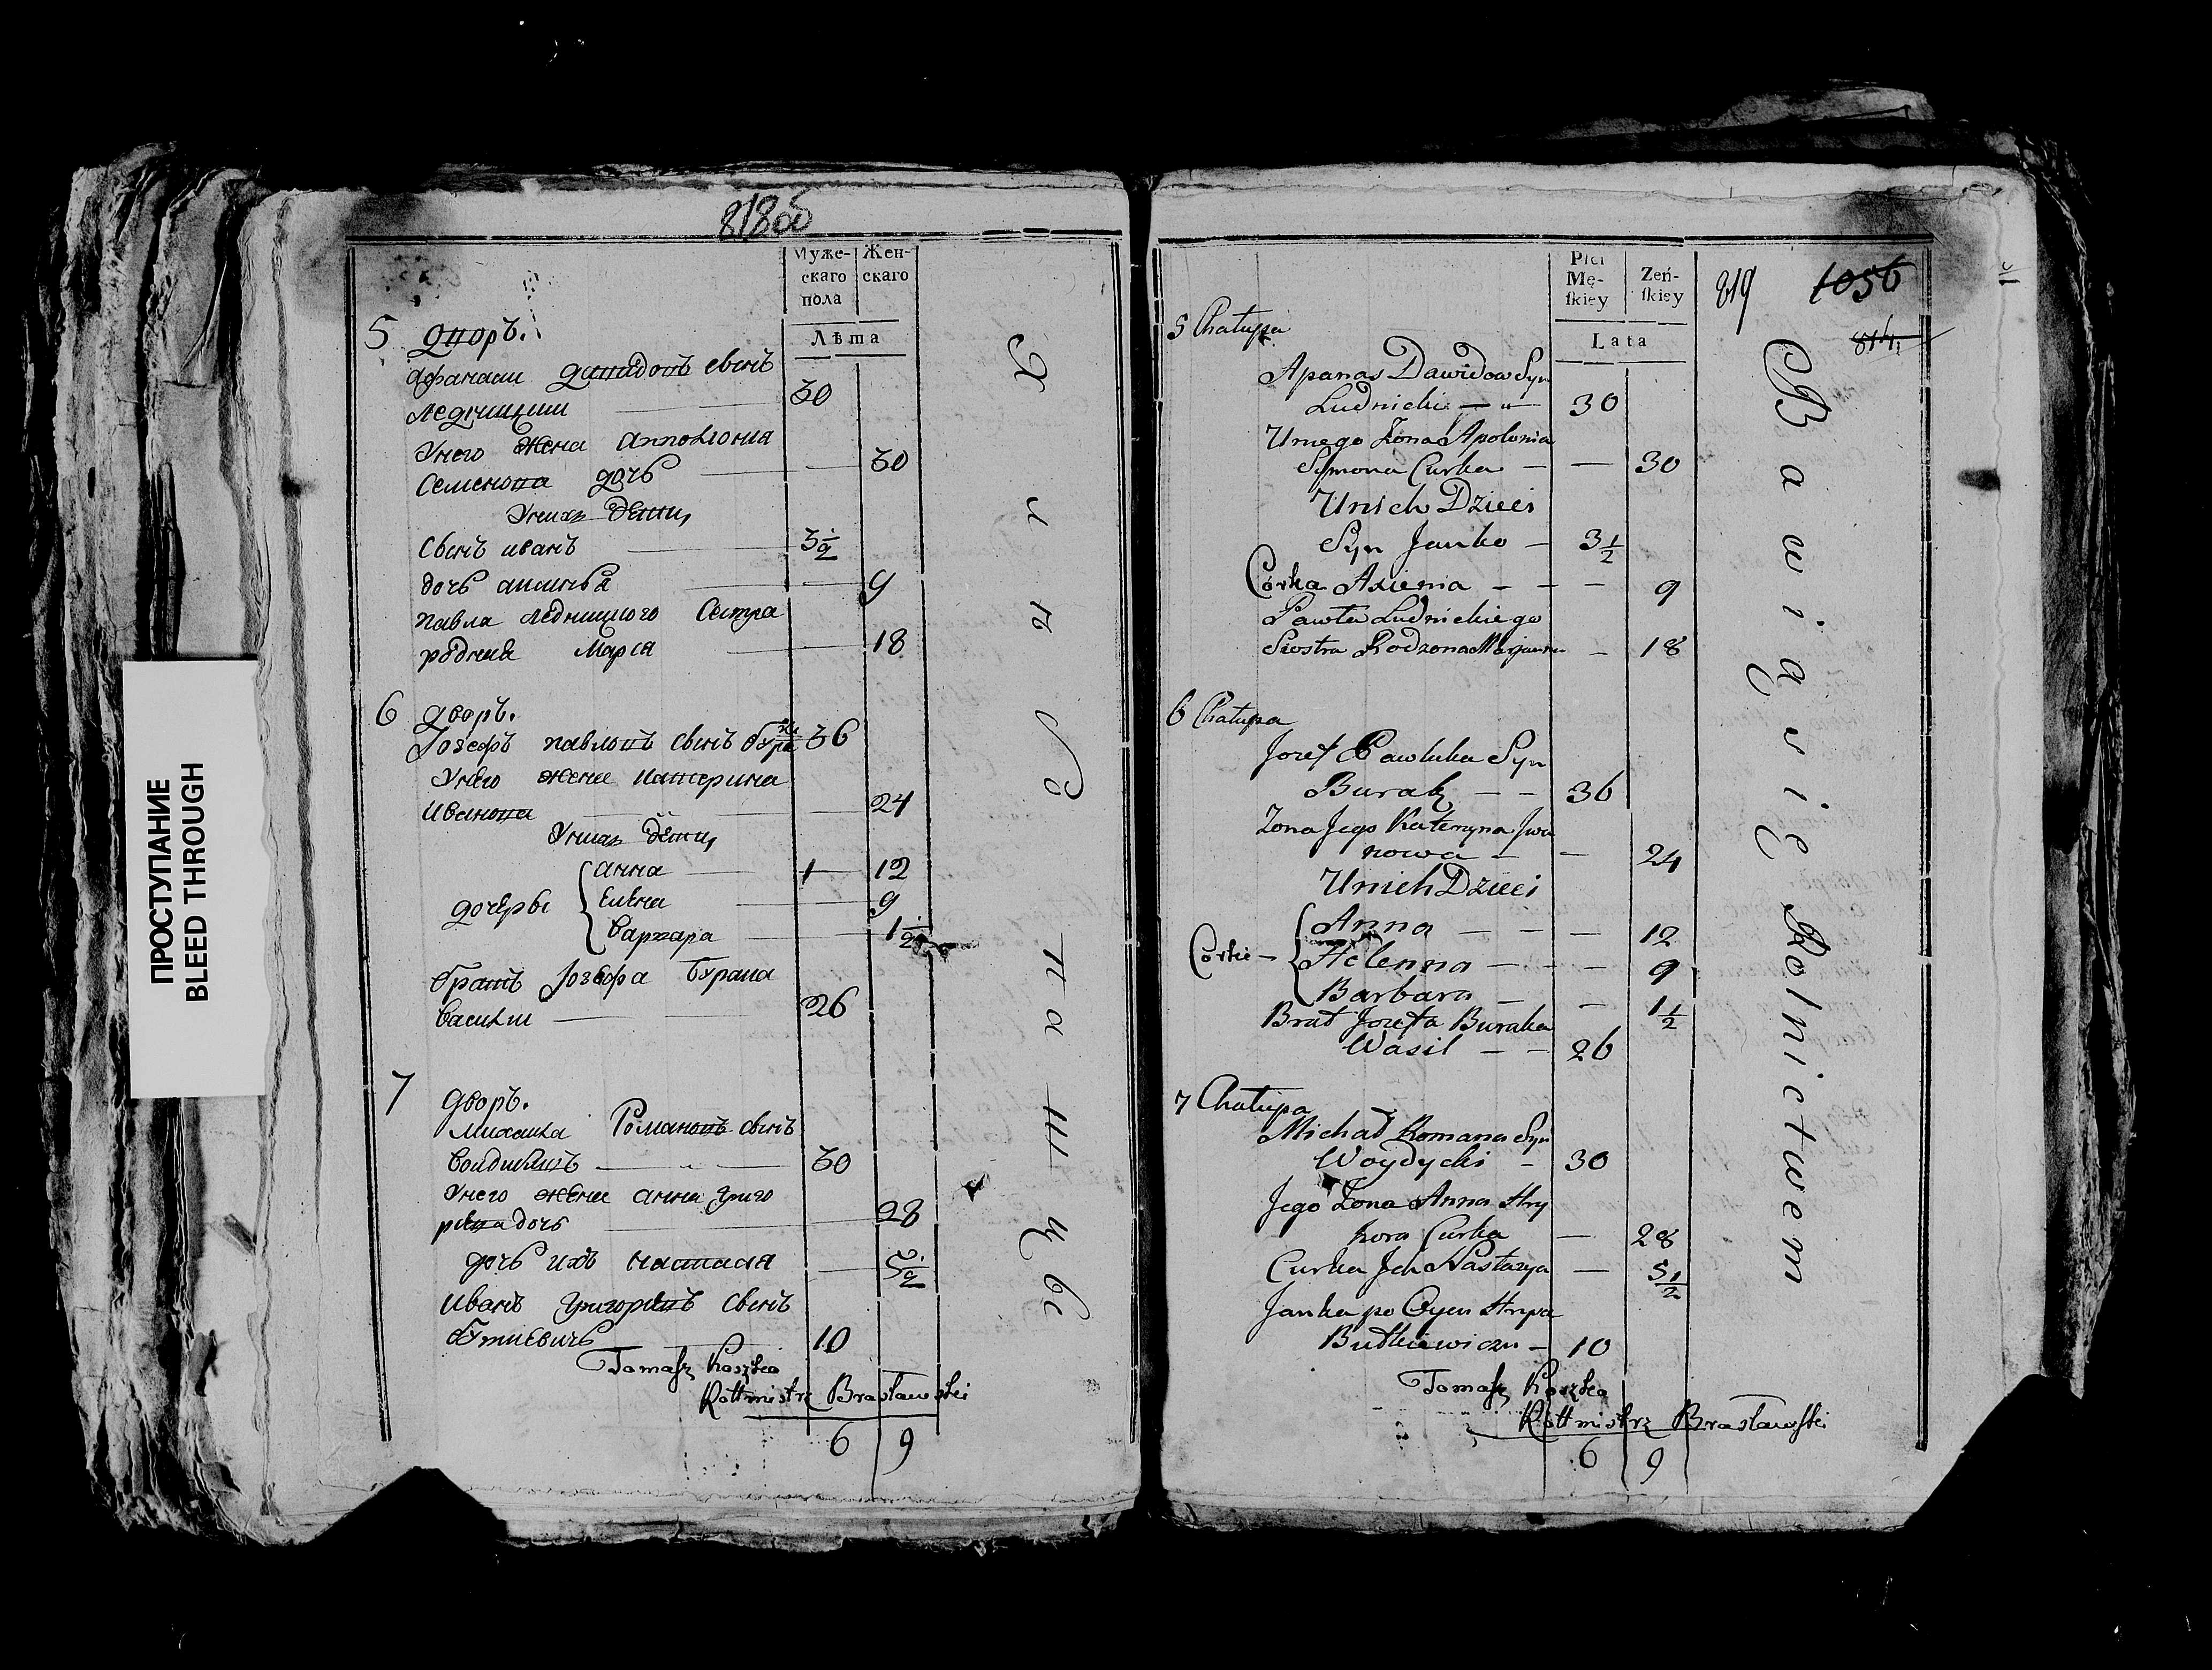 ПРОСТУПАНИЕ
BLEED THROUGH
818об
Муже-
скаго
пола
Жен-
скаго
Лѣта
5 дворъ.
Афанаси давидовъ сынъ
ледницки 30
Унего жена апполония
Семенова дочь 30
Уних дѣти,
Сынъ иванъ 3 1/2
дочь
павла ледницкого Сестра
родная Марея 18
6 дворъ.
Іозефъ павловъ сынъ бурак 36
Унего жена катерина
иванова 24
Уних дѣти,
дочеры
анна 12
Елена 9
варвара 1 1/2
братъ Іозефа бурака
василии 26
7 дворъ.
Михаила Романовъ сынъ
30
Унего жена анна григо
рева дочь 28
дочь ихъ настасия 5 1/2
иванъ григоревъ сынъ
буткевичь 10
Tomasz Koszko
Rottmistrz Brasławski
6 9
Хлѣбопашцы
Płci
Mę-
skiey
Żeń-
skiey
Lata
819
1056
814
5 Chałupa
Apanas Dawidow Syn
Ludnicki 30
Uniego Zona Apolonia
Symona Curka 30
Unich Dzieci
Syn Janko 3 1/2
Córka Axienia 9
Pawła Ludnickiego
Siostra Rodzona Marjanna 18
6 Chałupa
Jozef Pawluka Syn
Burak 36
Zona Jego Kateryna Jwa
nowa 24
Unich Dzieci
Corki
Anna 12
Helenna 9
Barbara 1 1/2
Brat Jozefa Buraka
Wasil 26
7 Chałupa
Michał Romana Syn
Woydycki 30
Jego Zona Anna Hry
hora Curka 28
Curka Jch Nastazya 5 1/2
Janka po Oycu Hrypa
Butkiewiczu 10
Tomasz Koszko
Rottmistrz Brasławski
6 9
Bawią się Rolnictwem